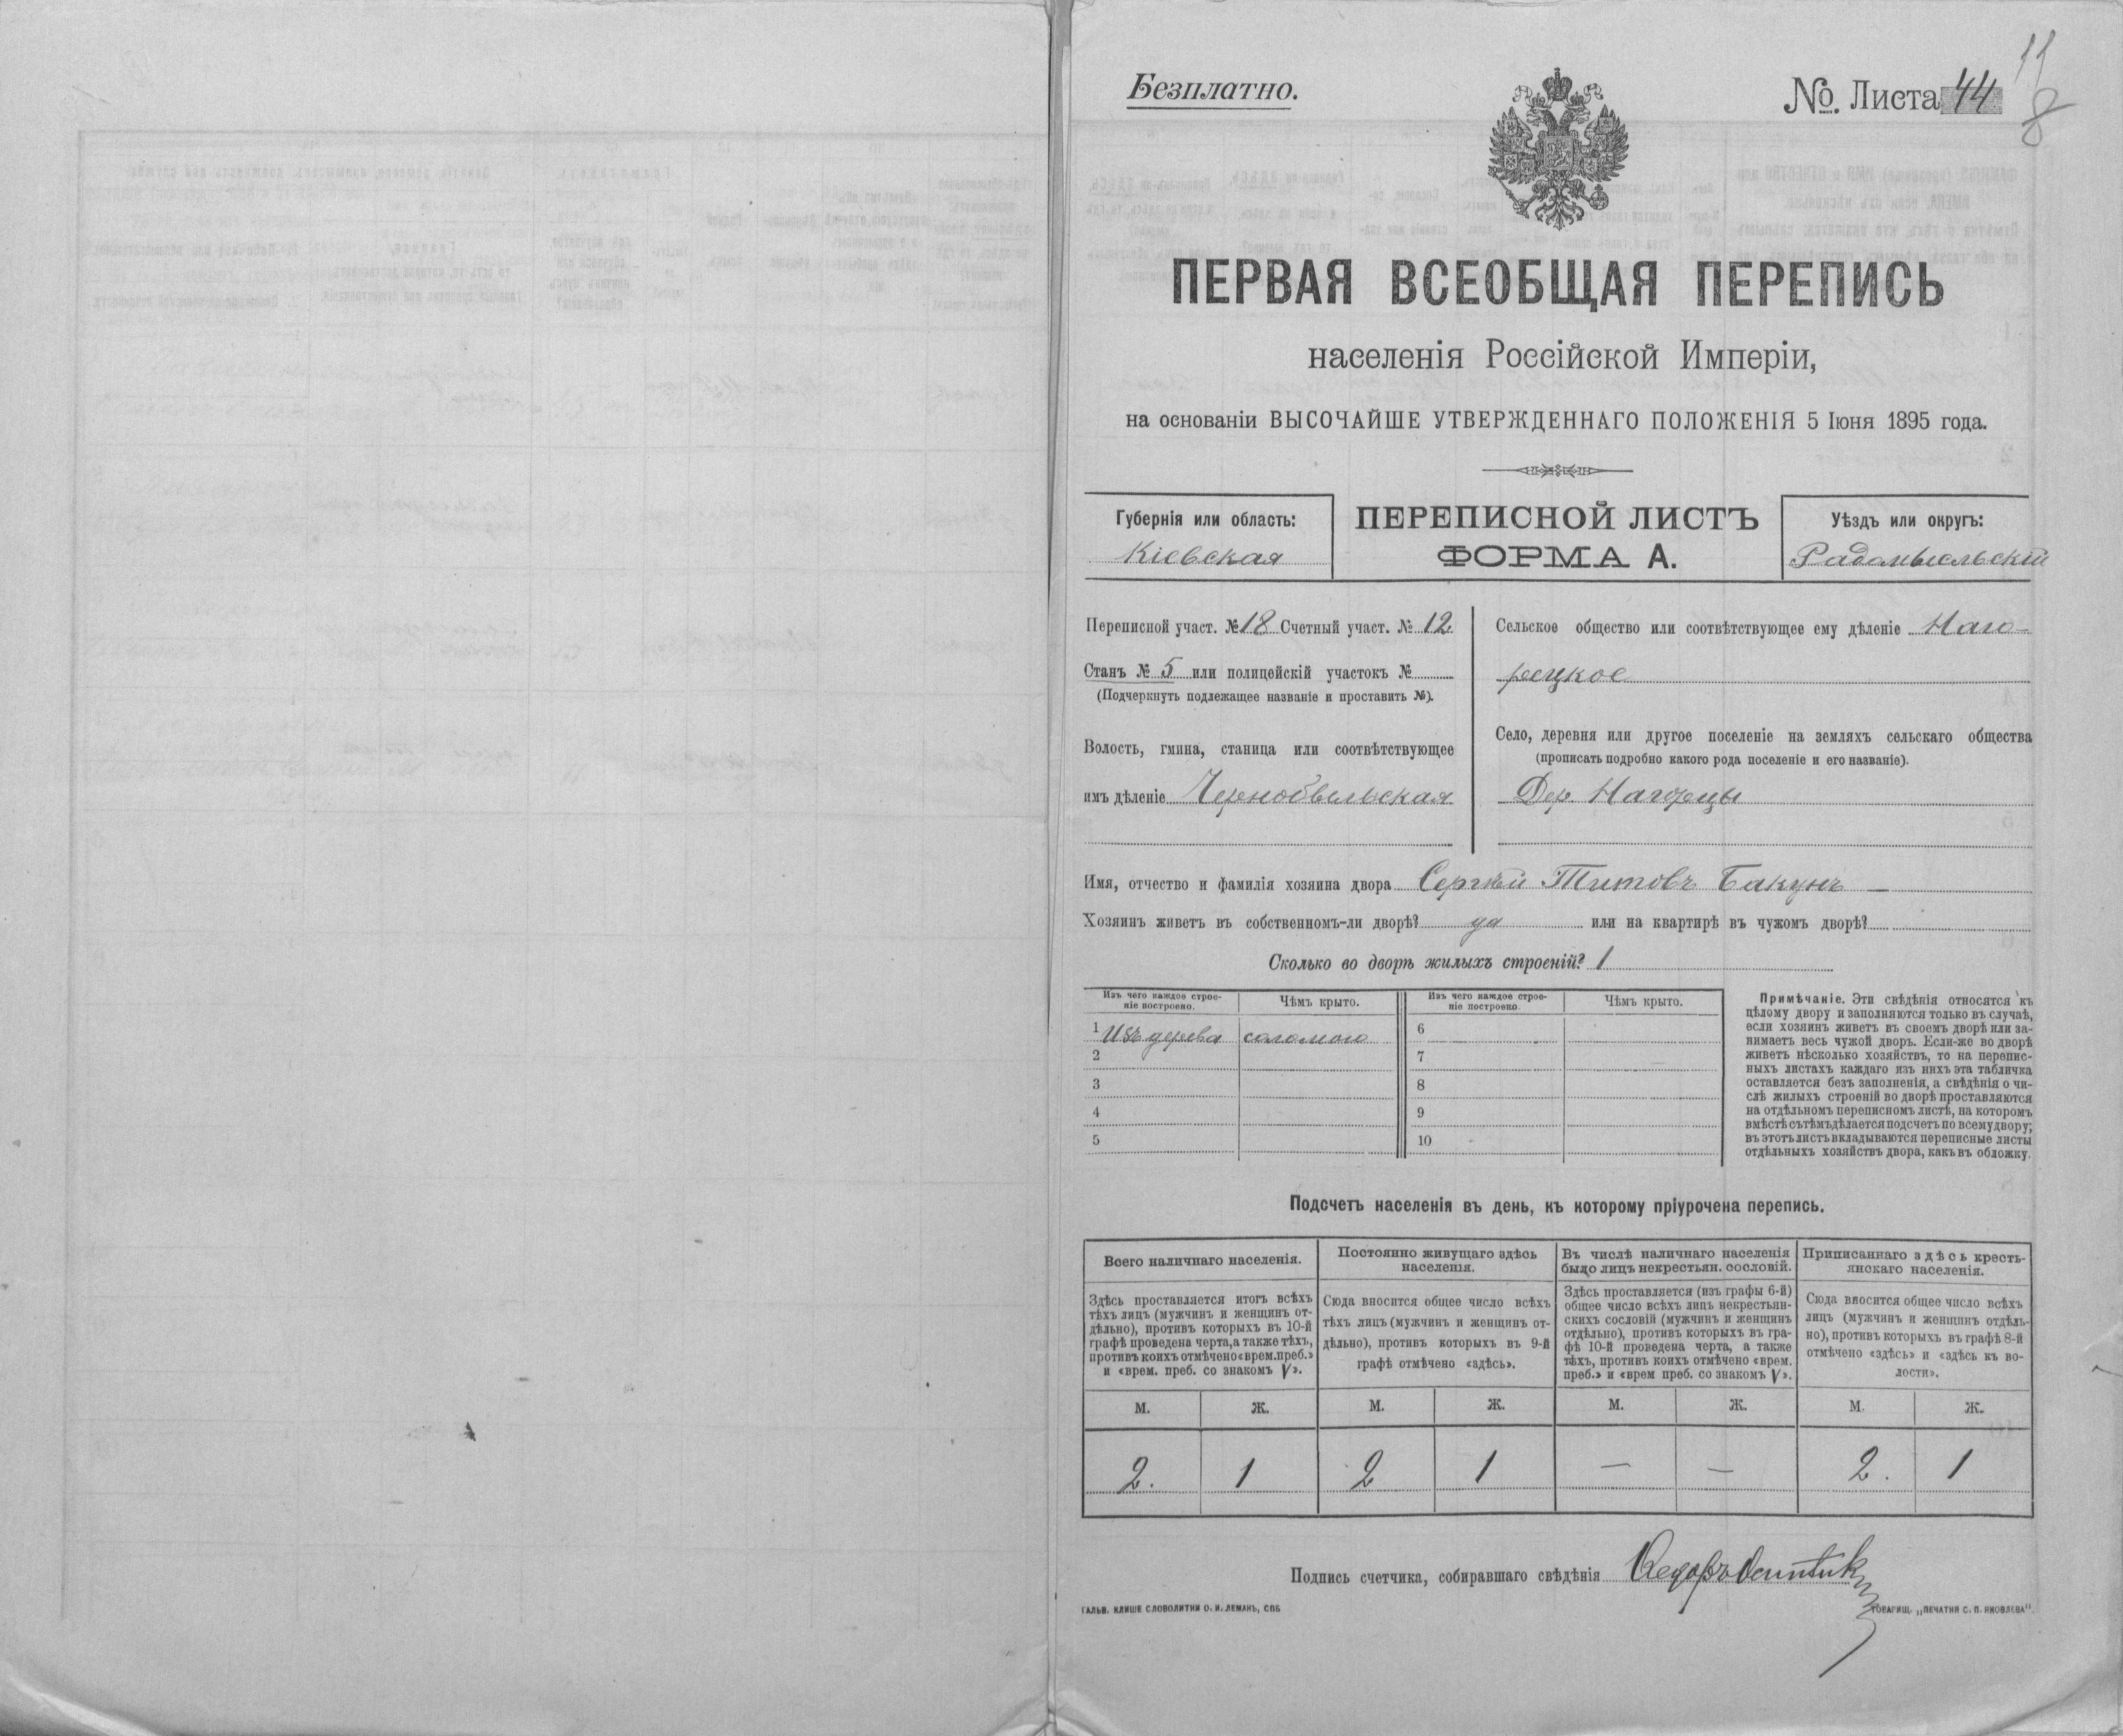 Безплатно.
№. Листа 44
11
8
ПЕРВАЯ ВСЕОБЩАЯ ПЕРЕПИСЬ
населенія Россійской Имперіи,
на основаніи ВЫСОЧАЙШЕ УТВЕРЖДЕННАГО ПОЛОЖЕНІЯ 5 Іюня 1895 года.
Губернія или область:
Кіевская
ПЕРЕПИСНОЙ ЛИСТЪ
ФОРМА А.
Уѣздъ или округъ:
Радомысльскій
Переписной участ. № 18 Счетный участ. № 12
Станъ № 5 или полицейскій участокъ №
(Подчеркнуть подлежащее названіе и проставить №).
Волость, гмина, станица или соотвѣтствующее
имъ дѣленіе Чернобыльская
Сельское общество или соотвѣтствующее ему дѣленіе Наго-
рецкое
Село, деревня или другое поселеніе на земляхъ сельскаго общества
(прописать подробно какого рода поселеніе и его названіе).
Дер. Нагорцы
Имя, отчество и фамилія хозяина двора Сергѣй Титовъ Бакунъ —
Хозяинъ живетъ въ собственномъ-ли дворѣ? да или на квартирѣ въ чужомъ дворѣ?
Сколько во дворѣ жилыхъ строеній? 1
Изъ чего каждое строе-
ніе построено.
Чѣмъ крыто.
Изъ чего каждое строе-
ніе построено.
Чѣмъ крыто.
1 Изъ дерева соломою 6
2 7
3 8
4 9
5 10
Примѣчаніе. Эти свѣдѣнія относятся къ
цѣлому двору и заполняются только въ случаѣ,
если хозяинъ живетъ въ своемъ дворѣ или за-
нимаетъ весь чужой дворъ. Если-же во дворѣ
живетъ нѣсколько хозяйствъ, то на перепис-
ныхъ листахъ каждаго изъ нихъ эта табличка
оставляется безъ заполненія, а свѣдѣнія о чи-
слѣ жилыхъ строеній во дворѣ проставляются
на отдѣльномъ переписномъ листѣ, на которомъ
вмѣстѣ сътѣмъ дѣлается подсчетъ по всему двору;
въ этотъ листъ вкладываются переписные листы
отдѣльныхъ хозяйствъ двора, какъ въ обложку.
Подсчетъ населенія въ день, къ которому пріурочена перепись.
Всего наличнаго населенія.
Здѣсь проставляется итогъ всѣхъ
тѣхъ лицъ (мужчинъ и женщинъ от-
дѣльно), противъ которыхъ въ 10-й
графѣ проведена черта, а также тѣхъ,
противъ коихъ отмѣчено «врем. преб.»
и «врем. преб. со знакомъ V».
Постоянно живущаго здѣсь
населенія.
Сюда вносится общее число всѣхъ
тѣхъ лицъ (мужчинъ и женщинъ от-
дѣльно), противъ которыхъ въ 9-й
графѣ отмѣчено «здѣсь».
Въ числѣ наличнаго населенія
было лицъ некрестьян. сословій.
Здѣсь проставляется (изъ графы 6-й)
общее число всѣхъ лицъ некрестьян-
скихъ сословій (мужчинъ и женщинъ
отдѣльно), противъ которыхъ въ гра-
фѣ 10-й проведена черта, а также
тѣхъ, противъ коихъ отмѣчено «врем.
преб.» и «врем преб. со знакомъ V».
Приписаннаго здѣсь кресть-
янскаго населенія.
Сюда вносится общее число всѣхъ
лицъ (мужчинъ и женщинъ отдѣль-
но), противъ которыхъ въ графѣ 8-й
отмѣчено «здѣсь» и «здѣсь къ во-
лости».
М. Ж. М. Ж. М. Ж. М. Ж.
2. 1 2 1 — — 2. 1
Подпись счетчика, собиравшаго свѣдѣнія Ѳедоръ
ГАЛЬВ. КЛИШЕ СЛОВОЛИТНИ О. И. ЛЕМАНЪ, СПБ
ТОВАРИЩ. „ПЕЧАТНЯ С. П. ЯКОВЛЕВА".